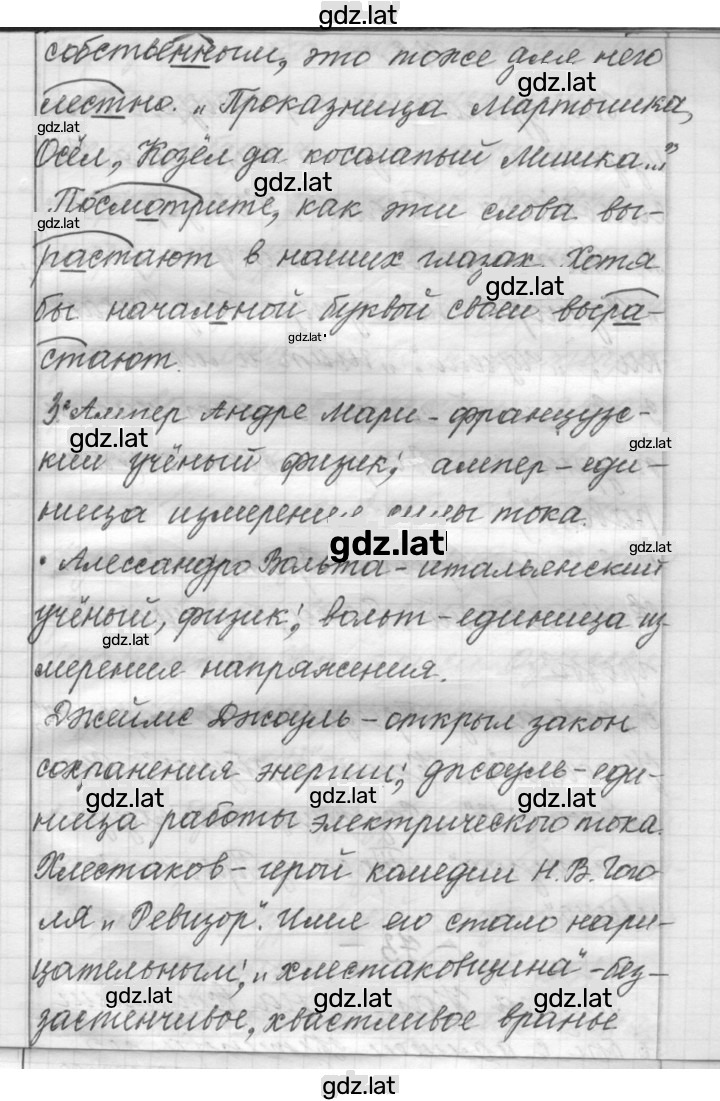 gdz.lat
собственным, это тоже для него
gdz.lat
лестно. „Проказница Мартышка,
gdz.lat
Осёл, Козёл да косолапый Мишка..."
gdz.lat
Посмотрите, как эти слова вы-
gdz.lat
растают в наших глазах. Хотя
gdz.lat
бы начальной буквой своей выра-
gdz.lat
стают.
3. Ампер Андре Мари - французс-
gdz.lat gdz.lat
кий учёный физик; ампер - еди-
ница измерения силы тока.
gdz.lat gdz.lat
• Алессандро Вольта - итальянский
учёный, физик; вольт - единица из
gdz.lat
мерение напряжения.
Джеймс Джоуль - открыл закон
сохранения энергии; джоуль - еди-
gdz.lat gdz.lat gdz.lat
ница работы электрического тока.
Хлестаков - герой комедии Н.В. Гого
ля „Ревизор". Имя его стало нари-
цательным; „хлестаковщина" - без-
gdz.lat gdz.lat gdz.lat
застенчивое, хвастливое вранье
gdz.lat